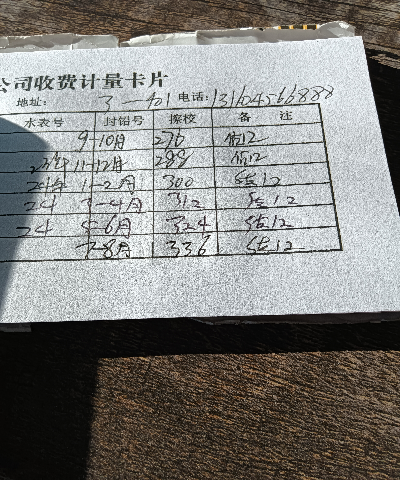 公司收费计量卡片
地址: 3-401 电话: 13164566888
水表号 封铅号 擦校 备注
9-10月 276 估12
23年11-12月 288 估12
24年 1-2月 300 估12
24 3-4月 312 估12
24 5-6月 324 估12
7-8月 336 估12